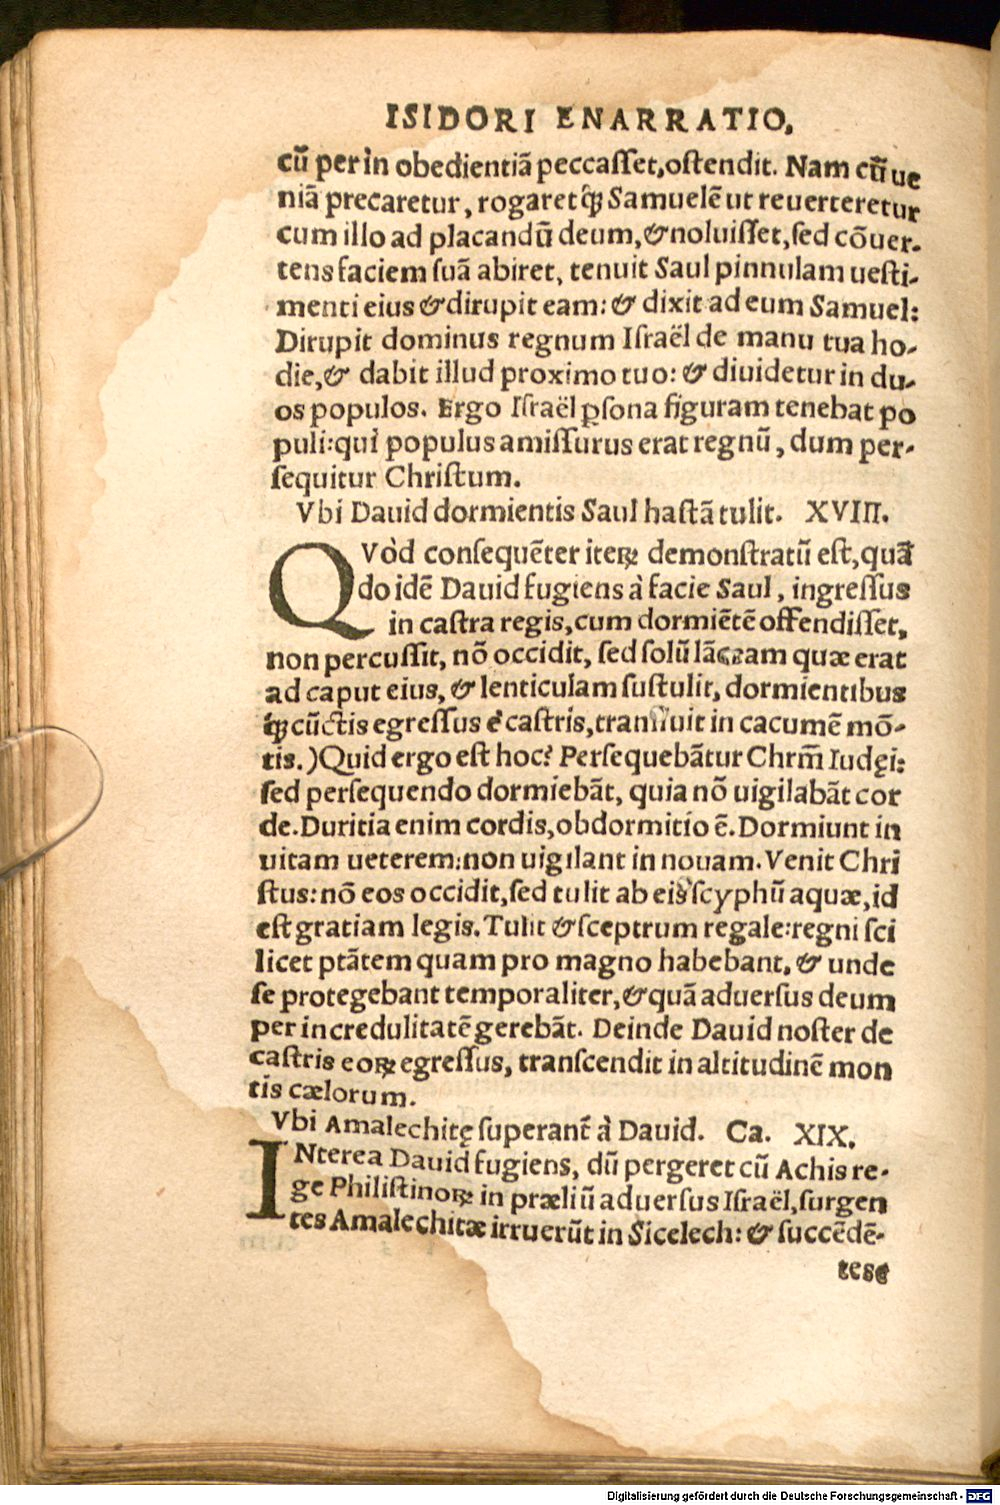 ISIDORI ENARRATIO.
cū per in obedientiā peccaſſet,oſtendit. Nam cū ue
niā precaretur, rogaretq́ꝫ Samuelē ut reuerteretur
cum illo ad placandū deum,&noluiſſet,ſed cōuer-
tens faciem ſuā abiret, tenuit Saul pinnulam ueſti-
menti eius &dirupit eam: & dixit ad eum Samuel:
Dirupit dominus regnum Iſraël de manu tua ho-
die,& dabit illud proximo tuo: & diuidetur in du-
os populos. Ergo Iſraël ꝑſona figuram tenebat po
puli:qui populus amiſſurus erat regnū, dum per-
ſequitur Chriſtum.
Vbi Dauid dormientis Saul haſtā tulit. XVIII.
QVòd conſequēter iteꝝ demonſtratū eſt,quā
do idē Dauid fugiens à facie Saul, ingreſſus
in caſtra regis,cum dormiētē offendiſſet,
non percuſſit, nō occidit, ſed ſolū lāceam quæ erat
ad caput eius, & lenticulam ſuſtulit, dormientibus
q́ꝫ cūctis egreſſus è caſtris,tranſiuit in cacumē mō-
tis.)Quid ergo eſt hoc? Perſequebātur Chrm̄ Iudęi:
ſed perſequendo dormiebāt, quia nō uigilabāt cor
de.Duritia enim cordis,obdormitio ē.Dormiunt in
uitam ueterem:non uigilant in nouam.Venit Chri
ſtus:nō eos occidit,ſed tulit ab eis ſcyphū aquæ,id
eſt gratiam legis.Tulit &ſceptrum regale:regni ſci
licet ptātem quam pro magno habebant, & unde
ſe protegebant temporaliter,&quā aduerſus deum
per incredulitatē gerebāt. Deinde Dauid noſter de
caſtris eoꝝ egreſſus, tranſcendit in altitudinē mon
tis cælorum.
Vbi Amalechitę ſuperant̄ à Dauid. Ca. XIX.
INterea Dauid fugiens, dū pergeret cū Achis re-
ge Philiſtinoꝝ in præliū aduerſus Iſraël,ſurgen
tes Amalechitæ irruerūt in Sicelech: & ſuccēdē-
tesq́
Digitalisierung gefördert durch die Deutsche Forschungsgemeinschaft - DFG